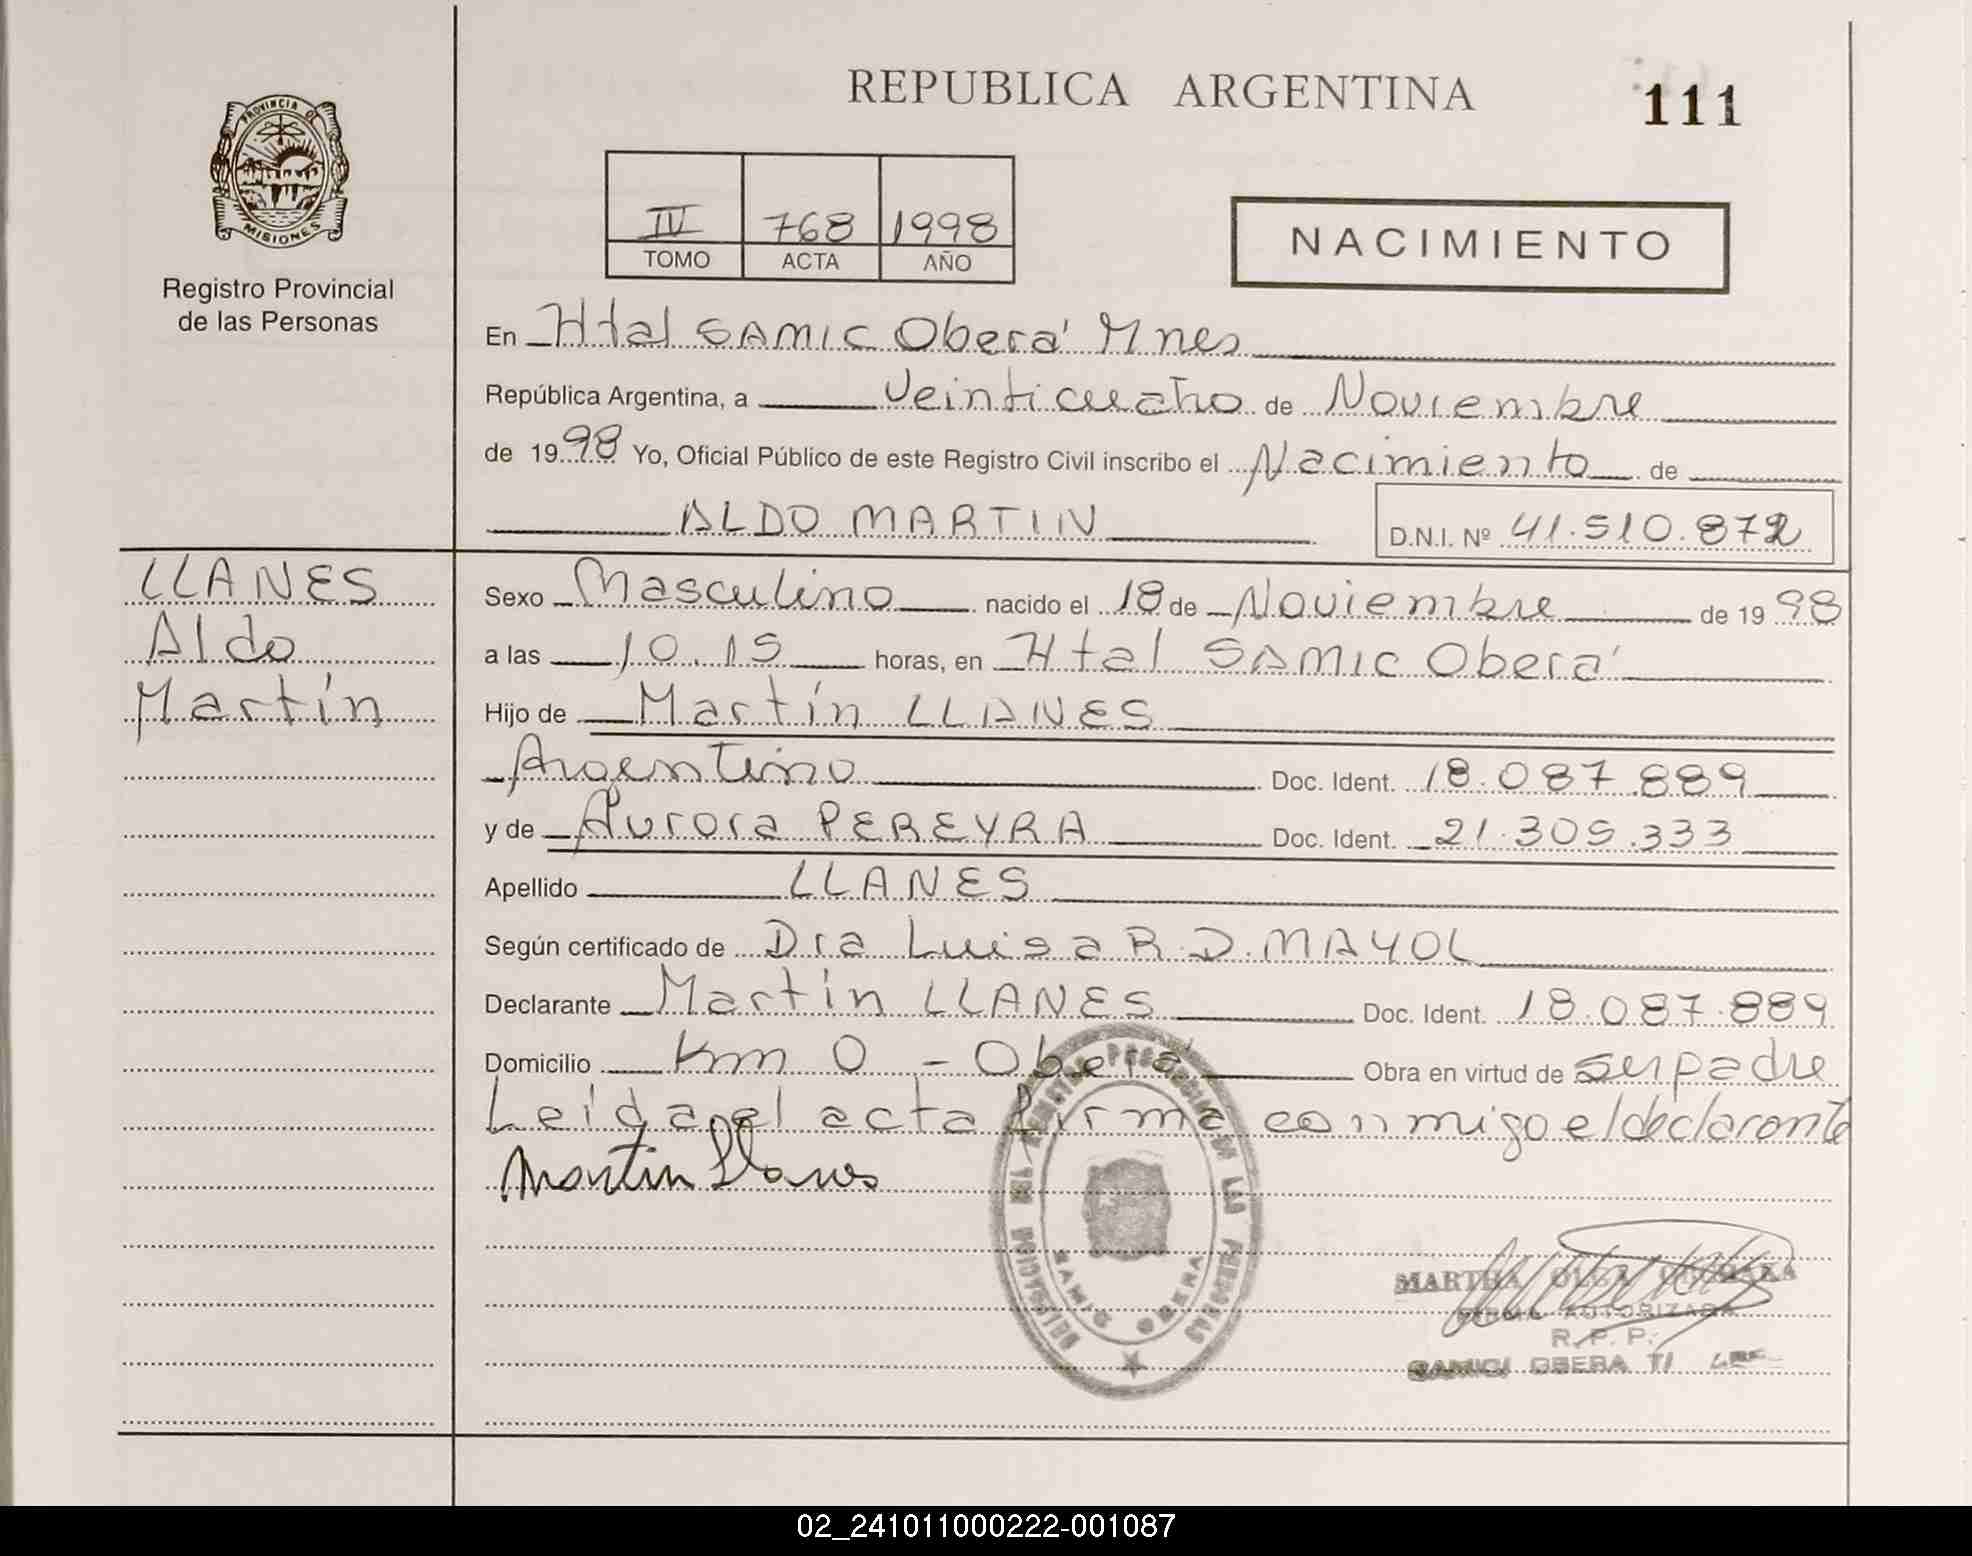 REPUBLICA ARGENTINA
111
PROVINCIA DE
MISIONES
Registro Provincial
de las Personas
IV 768 1998
TOMO ACTA AÑO
NACIMIENTO
En Htal SAMIC Oberá Mnes
República Argentina, a Veinticuatro de Noviembre
de 1998 Yo, Oficial Público de este Registro Civil inscribo el Nacimiento de
ALDO MARTIN
D.N.I. Nº 41.510.872
LLANES
Aldo
Martín
Sexo Masculino nacido el 18 de Noviembre de 1998
a las 10.15 horas, en Htal SAMIC Oberá
Hijo de Martín LLANES
Argentino Doc. Ident. 18.087.889
y de Aurora PEREYRA Doc. Ident. 21.305.333
Apellido LLANES
Según certificado de Dra Luisa R.D. MAYOL
Declarante Martín LLANES Doc. Ident. 18.087.889
Domicilio Km 0 - Oberá Obra en virtud de ser padre
Leida el acta firma conmigo el declarante
Martin Llanes
DELEGACION DEL REGISTRO PROVINCIAL DE LAS PERSONAS
SAMIC OBERA
MARTHA OLGA
FIRMA AUTORIZADA
R.P.P.
SAMIC OBERA
02_241011000222-001087